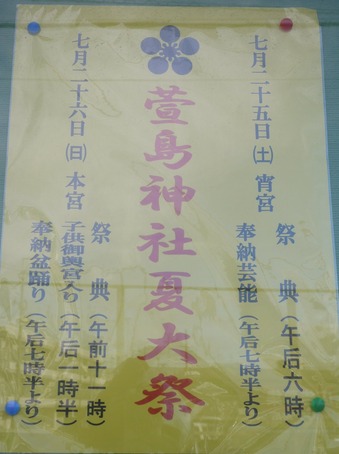 七月二十五日(土)宵宮
祭典(午后六時)
奉納芸能(午后七時半より)
萱島神社夏大祭
七月二十六日(日)本宮
祭典(午前十一時)
子供御輿宮入り(午后一時半)
奉納盆踊り(午后七時半より)